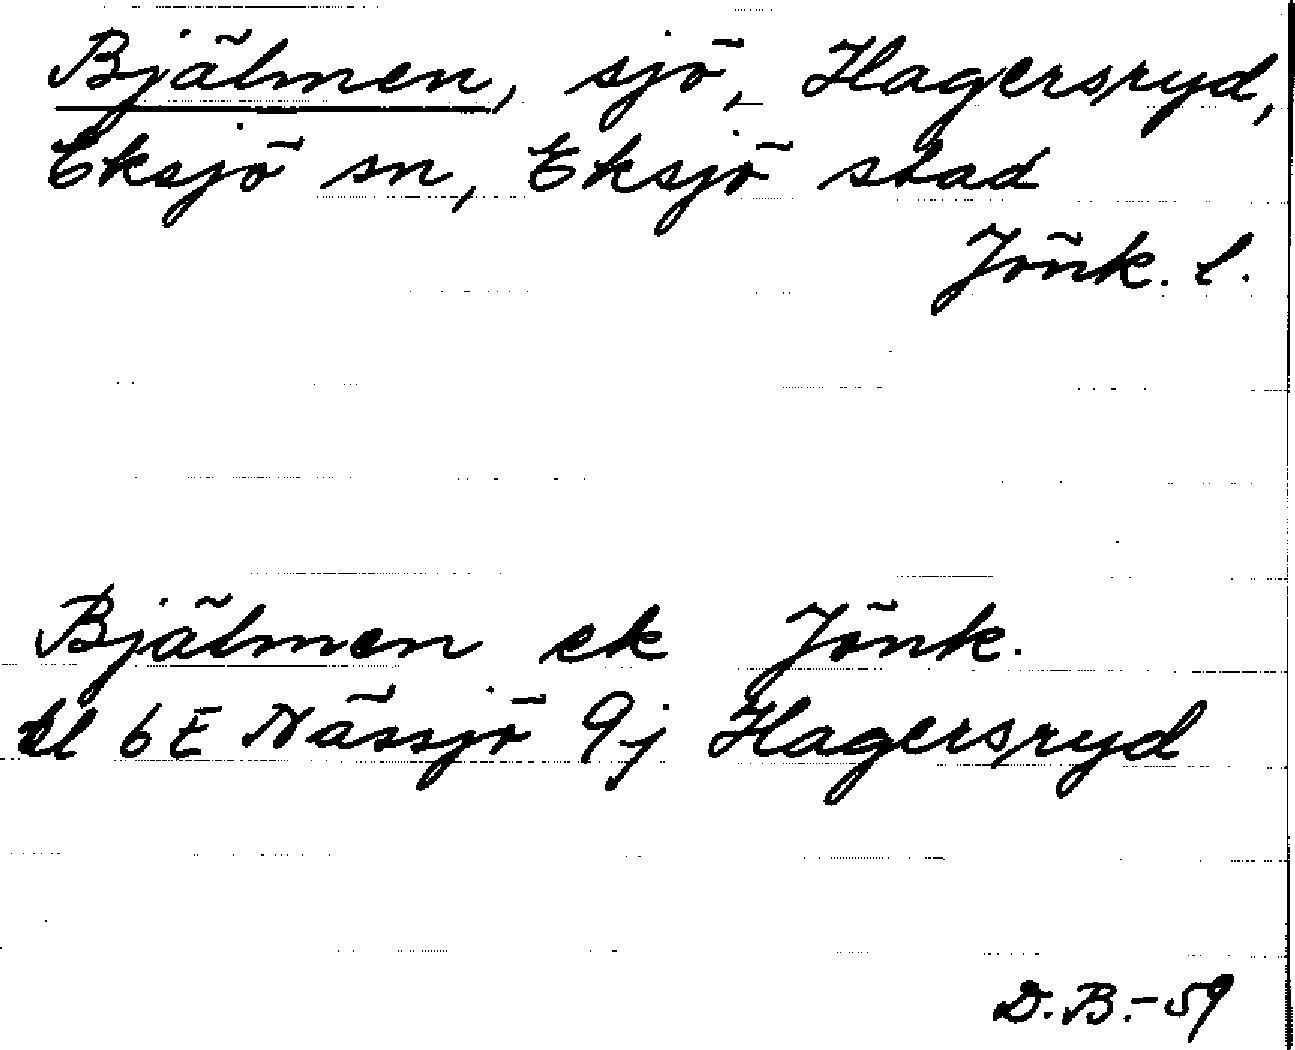 Bjälmen, sjö, Hagersryd,
Eksjö sn, Eksjö stad
Jönk. l.
Bjälmen ek Jönk.
bl 6E Nässjö 9j Hagersryd
D.B.-59